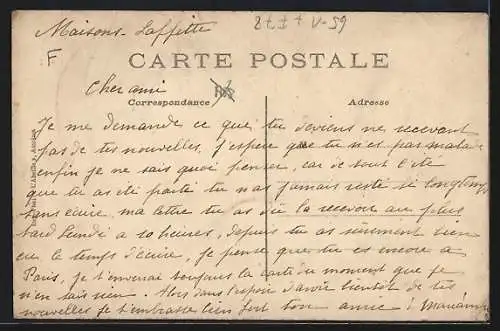 Maisons-Laffitte
F
CARTE POSTALE
Cher ami
Correspondance
Adresse
Je me demande ce que tu deviens ne recevant
pas de tes nouvelles, j'espère que tu n'es pas malade
enfin je ne sais quoi penser, car de tout l'été
que tu as été parti tu n'as jamais resté si longtemps
sans écrire, ma lettre tu as dû la recevoir au plus
tard lundi à 10 heures, depuis tu as surement bien
eu le temps d'écrire, je pense que tu es encore à
Paris, je t'enverai toujours la carte du moment que je
n'en sais rien. Alors dans l'espoir d'avoir bientôt de tes
nouvelles je t'embrasse bien fort ton amie